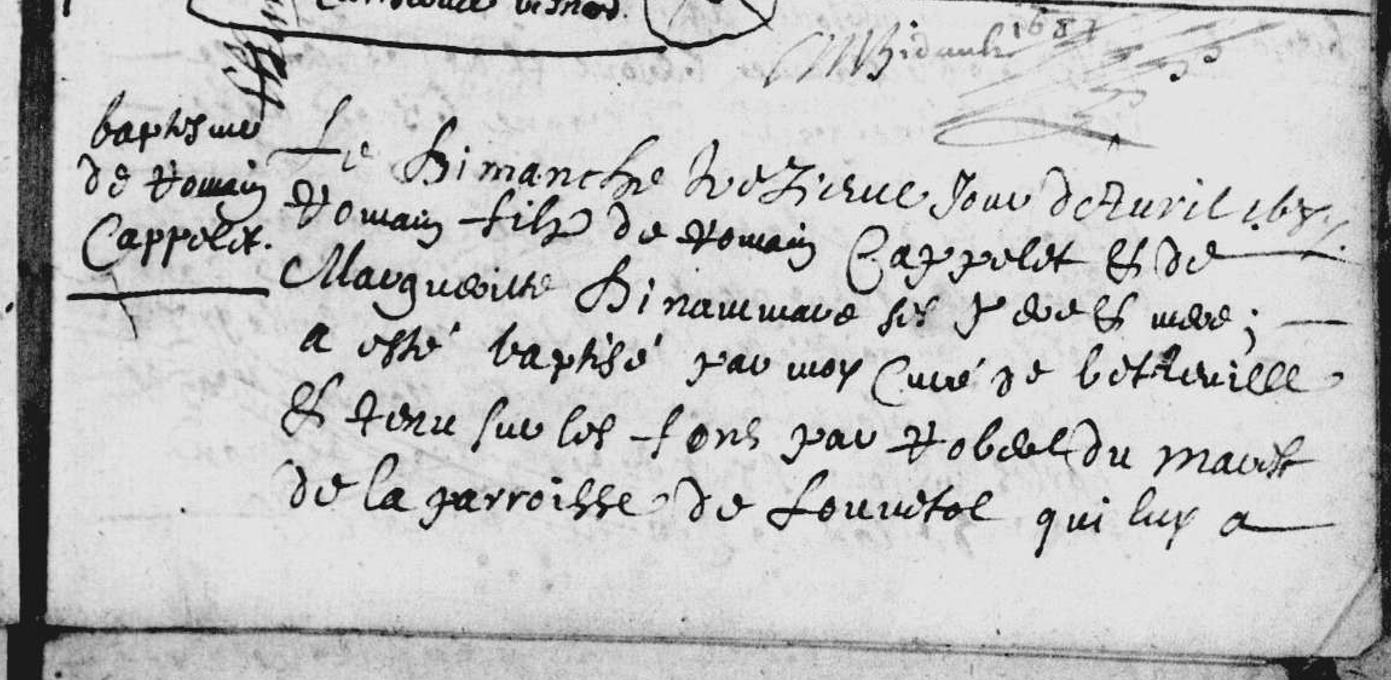 Bidault 1687
baptesme
de Romain
Cappelet.
Le Dimanche treziesme Jour d'Avril 1687.
Romain filz de Romain Cappelet & de
Margueritte Dinaumare ses pere & mere ;
a esté baptisé par moy Curé de betteville
& tenu sur les fons par Robert du marest
de la parroisse de Louvetot qui luy a